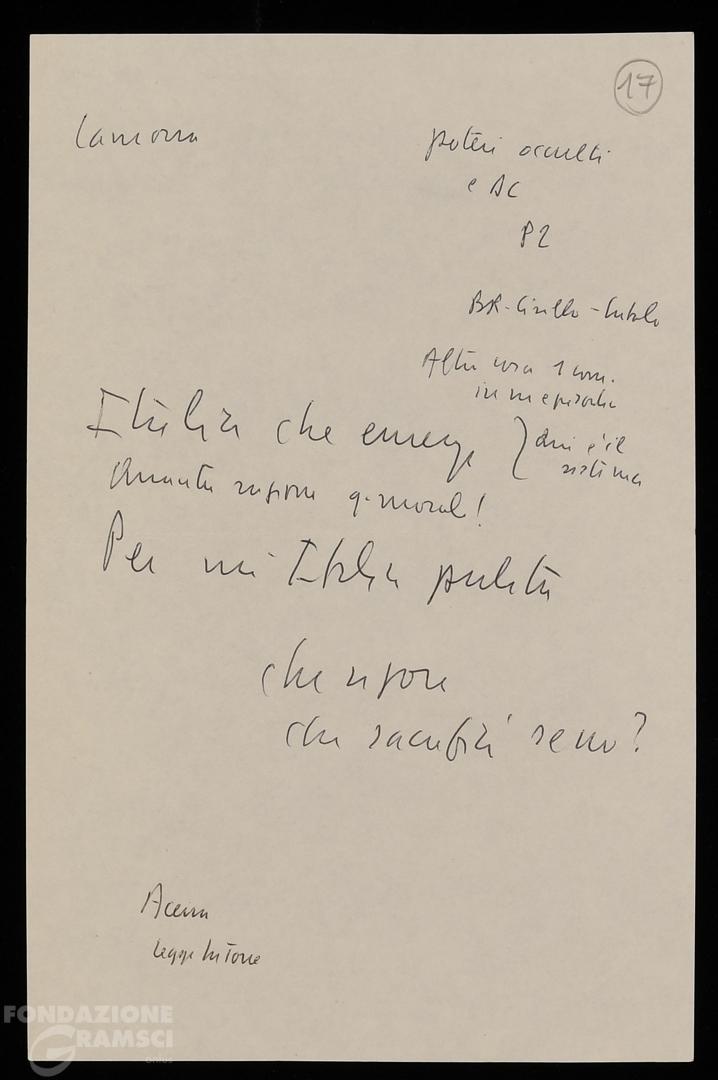 17
Camorra
poteri occulti
e DC
P2
BR-Cirillo-Cutolo
Altra cosa 1 com.
in un episodio
Italia che emerge
dove c'è il
sistema
Quanta ragione q. morale!
Per un'Italia pulita
che rigore
che sacrifici se no?
Acerra
legge La Torre
FONDAZIONE
GRAMSCI
onlus